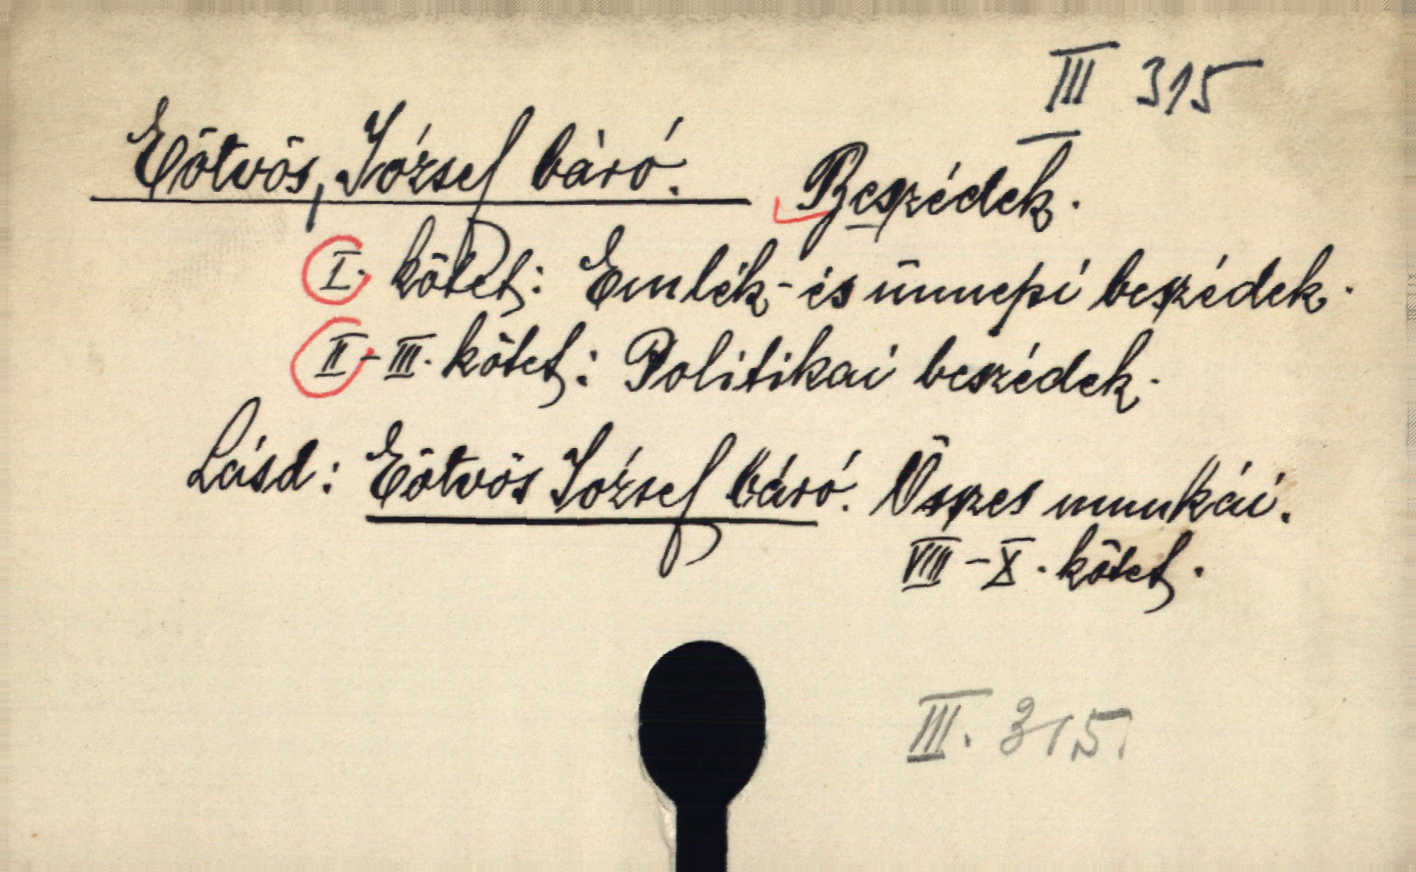 III 315
Eötvös, József báró. Beszédek.
I. kötet: Emlék- és ünnepi beszédek.
II-III. kötet: Politikai beszédek.
Lásd: Eötvös József báró. Összes munkái.
VIII-X. kötet.
III. 315.